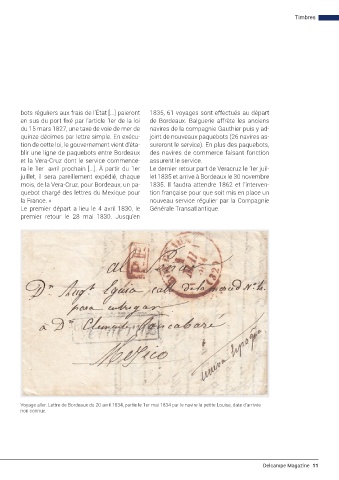 Timbres
bots réguliers aux frais de l'État [...] paieront
en sus du port fixé par l'article 1er de la loi
du 15 mars 1827, une taxe de voie de mer de
quinze décimes par lettre simple. En exécu-
tion de cette loi, le gouvernement vient d'éta-
blir une ligne de paquebots entre Bordeaux
et la Vera-Cruz dont le service commence-
ra le 1er avril prochain [...]. À partir du 1er
juillet, il sera pareillement expédié, chaque
mois, de la Vera-Cruz, pour Bordeaux, un pa-
quebot chargé des lettres du Mexique pour
la France. »
Le premier départ a lieu le 4 avril 1830, le
premier retour le 28 mai 1830. Jusqu'en
1835, 61 voyages sont effectués au départ
de Bordeaux. Balguerie affrète les anciens
navires de la compagnie Gauthier puis y ad-
joint de nouveaux paquebots (26 navires as-
sureront le service). En plus des paquebots,
des navires de commerce faisant fonction
assurent le service.
Le dernier retour part de Veracruz le 1er juil-
let 1835 et arrive à Bordeaux le 30 novembre
1835. Il faudra attendre 1862 et l'interven-
tion française pour que soit mis en place un
nouveau service régulier par la Compagnie
Générale Transatlantique.
P.P.
para entregar
a Dn
Mejico
Voyage aller. Lettre de Bordeaux du 20 avril 1834, partie le 1er mai 1834 par le navire la petite Louise, date d'arrivée
non connue.
Delcampe Magazine 11